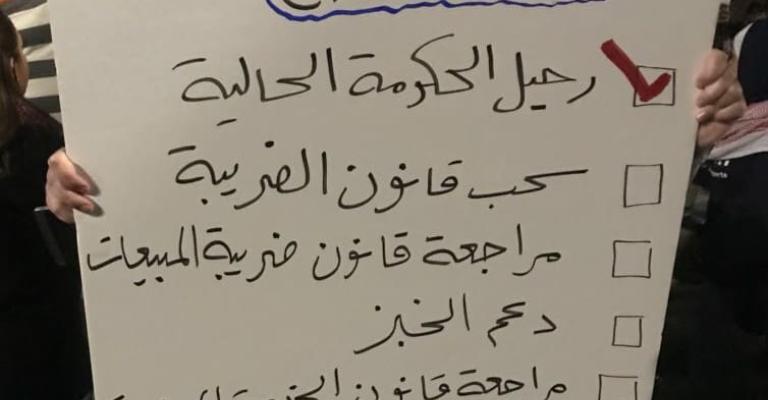 رحيل الحكومة الحالية
سحب قانون الضريبة
مراجعة قانون ضريبة المبيعات
دعم الخبز
مراجعة قانون